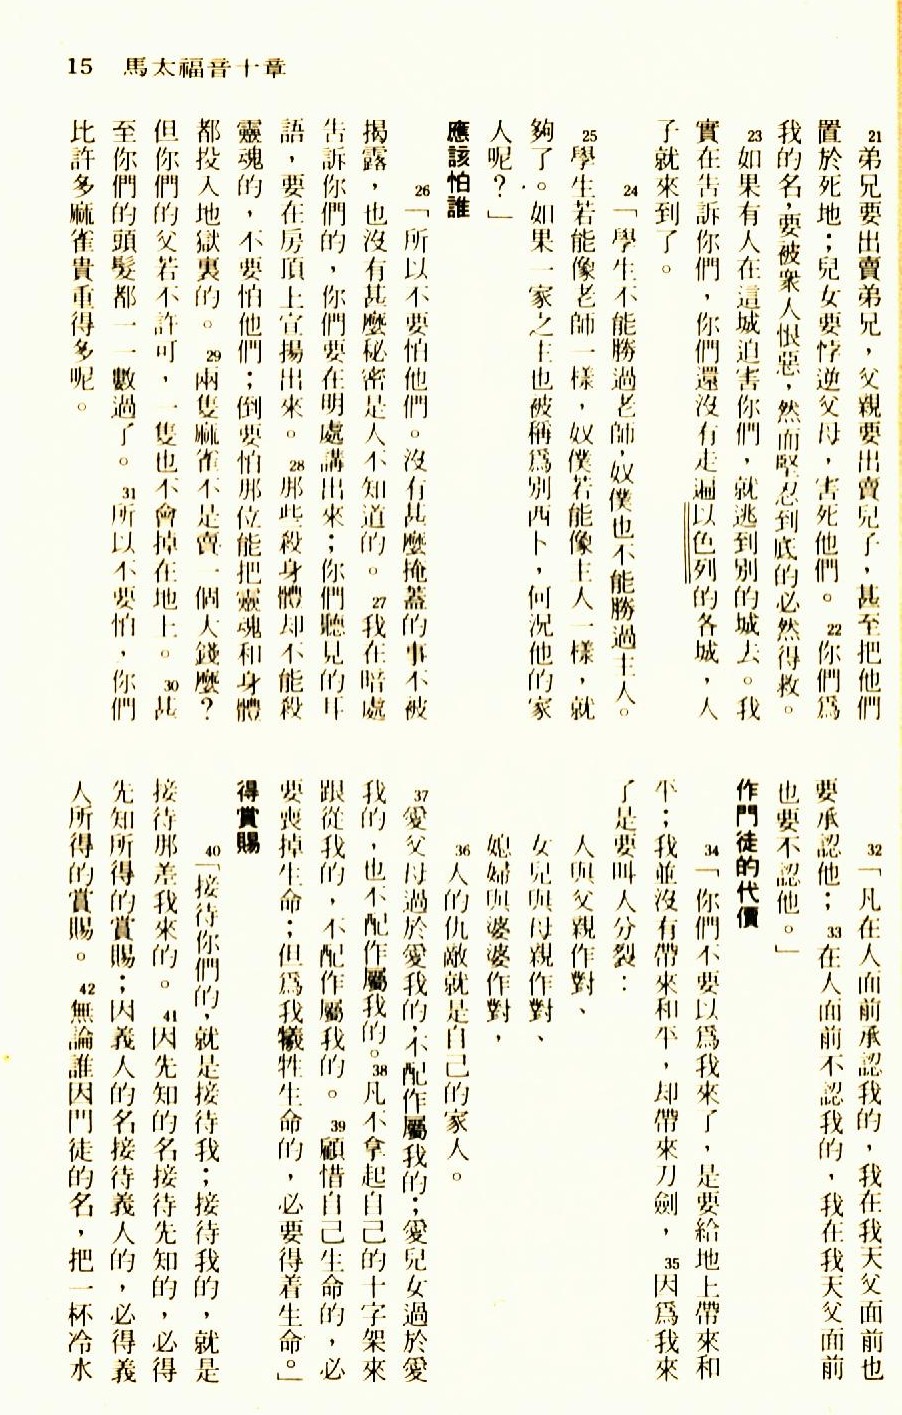 15 馬太福音十章
21弟兄要出賣弟兄，父親要出賣兒子，甚至把他們
置於死地；兒女要悖逆父母，害死他們。22你們爲
我的名，要被衆人恨惡，然而堅忍到底的必然得救。
23如果有人在這城迫害你們，就逃到別的城去。我
實在告訴你們，你們還沒有走遍以色列的各城，人
子就來到了。
24「學生不能勝過老師，奴僕也不能勝過主人。
25學生若能像老師一樣，奴僕若能像主人一樣，就
夠了。如果一家之主也被稱爲別西卜，何況他的家
人呢？」
應該怕誰
26「所以不要怕他們。沒有甚麼掩蓋的事不被
揭露，也沒有甚麼秘密是人不知道的。27我在暗處
告訴你們的，你們要在明處講出來；你們聽見的耳
語，要在房頂上宣揚出來。28那些殺身體却不能殺
靈魂的，不要怕他們；倒要怕那位能把靈魂和身體
都投入地獄裏的。29兩隻麻雀不是賣一個大錢麼？
但你們的父若不許可，一隻也不會掉在地上。30甚
至你們的頭髮都一一數過了。31所以不要怕，你們
比許多麻雀貴重得多呢。
32「凡在人面前承認我的，我在我天父面前也
要承認他；33在人面前不認我的，我在我天父面前
也要不認他。」
作門徒的代價
34「你們不要以爲我來了，是要給地上帶來和
平；我並沒有帶來和平，却帶來刀劍，35因爲我來
了是要叫人分裂：
人與父親作對、
女兒與母親作對、
媳婦與婆婆作對，
36人的仇敵就是自己的家人。
37愛父母過於愛我的，不配作屬我的；愛兒女過於愛
我的，也不配作屬我的。38凡不拿起自己的十字架來
跟從我的，不配作屬我的。39顧惜自己生命的，必
要喪掉生命；但爲我犧牲生命的，必要得着生命。」
得賞賜
40「接待你們的，就是接待我；接待我的，就是
接待那差我來的。41因先知的名接待先知的，必得
先知所得的賞賜；因義人的名接待義人的，必得義
人所得的賞賜。42無論誰因門徒的名，把一杯冷水